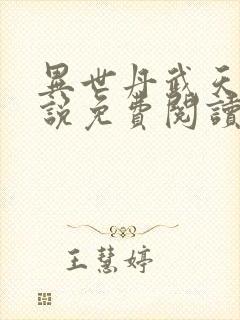 異世丹武天
說免費閱讀
王慧婷